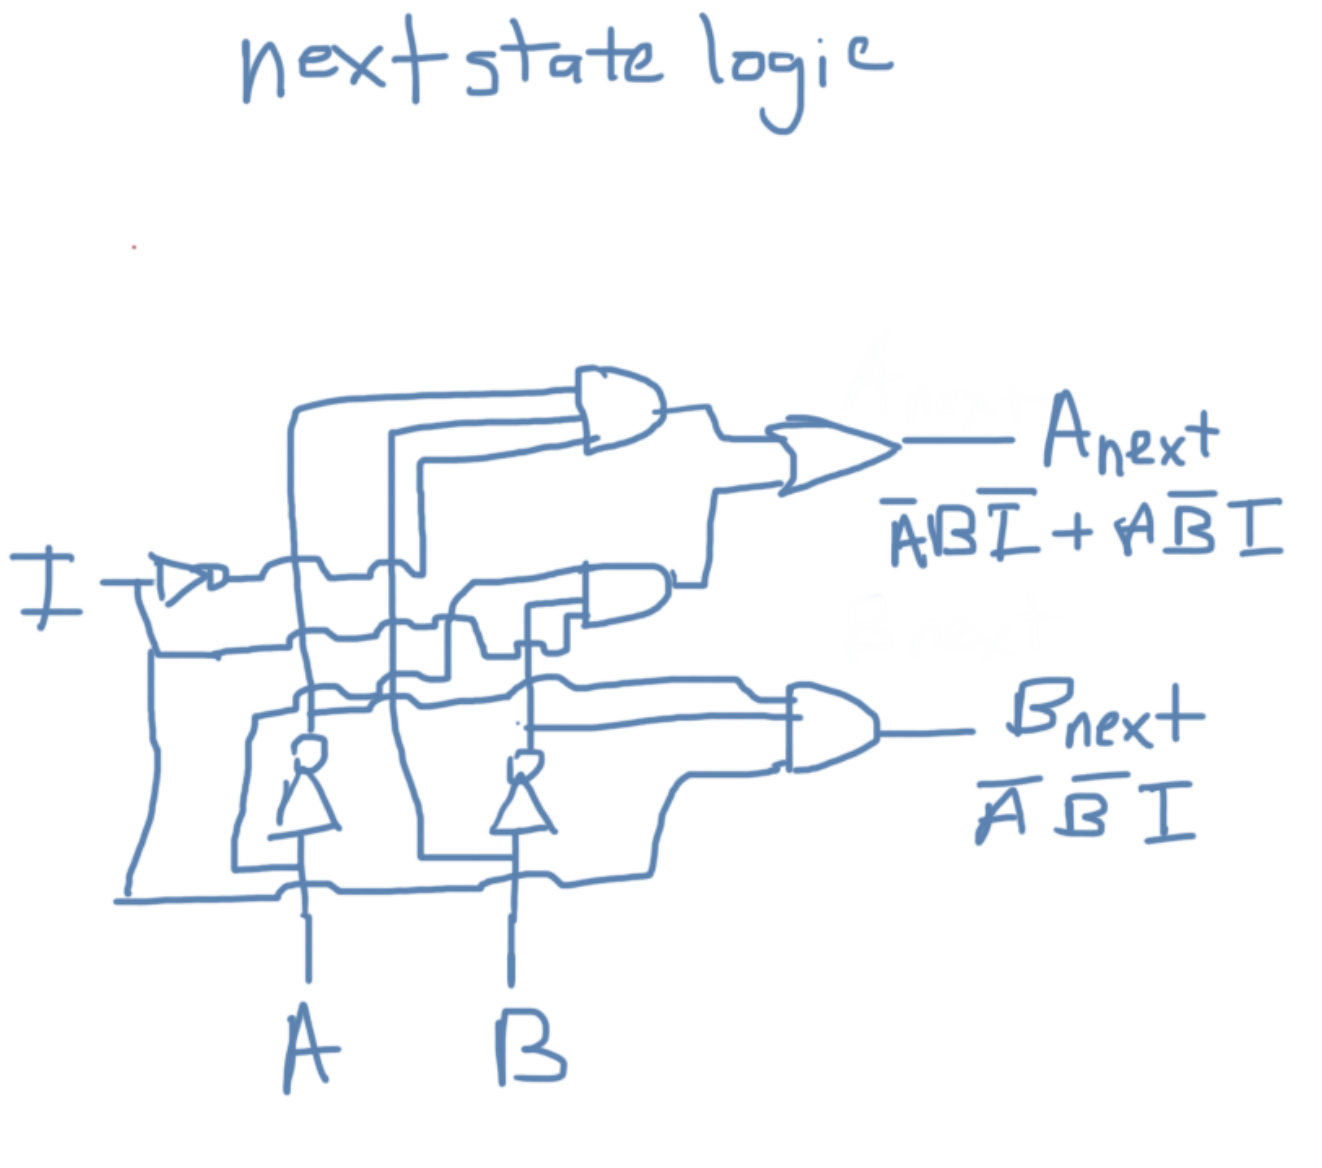 next state logic
I
A_next
A̅BI̅ + AB̅I
B_next
A̅ B̅ I
A
B